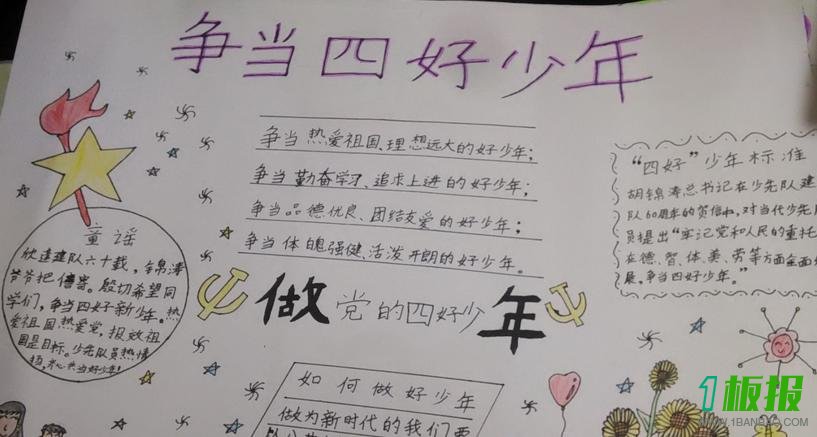 争当四好少年
争当热爱祖国、理想远大的好少年；
争当勤奋学习、追求上进的好少年；
争当品德优良、团结友爱的好少年；
争当体魄强健、活泼开朗的好少年。
做党的四好少年
童谣
欣逢建队六十载，锦涛
爷爷把信寄。殷切希望同
学们，争当四好新少年。热
爱祖国热爱党，报效祖
国是目标。少先队员热情
当好少年！
"四好"少年标准
胡锦涛总书记在少先队建
队60周年的贺信中，对当代少先队
员提出"牢记党和人民的重托
在德、智、体、美、劳等方面全面
展。争当四好少年。"
如何做好少年
做为新时代的我们要
1板报
WWW.1BANBAO.COM